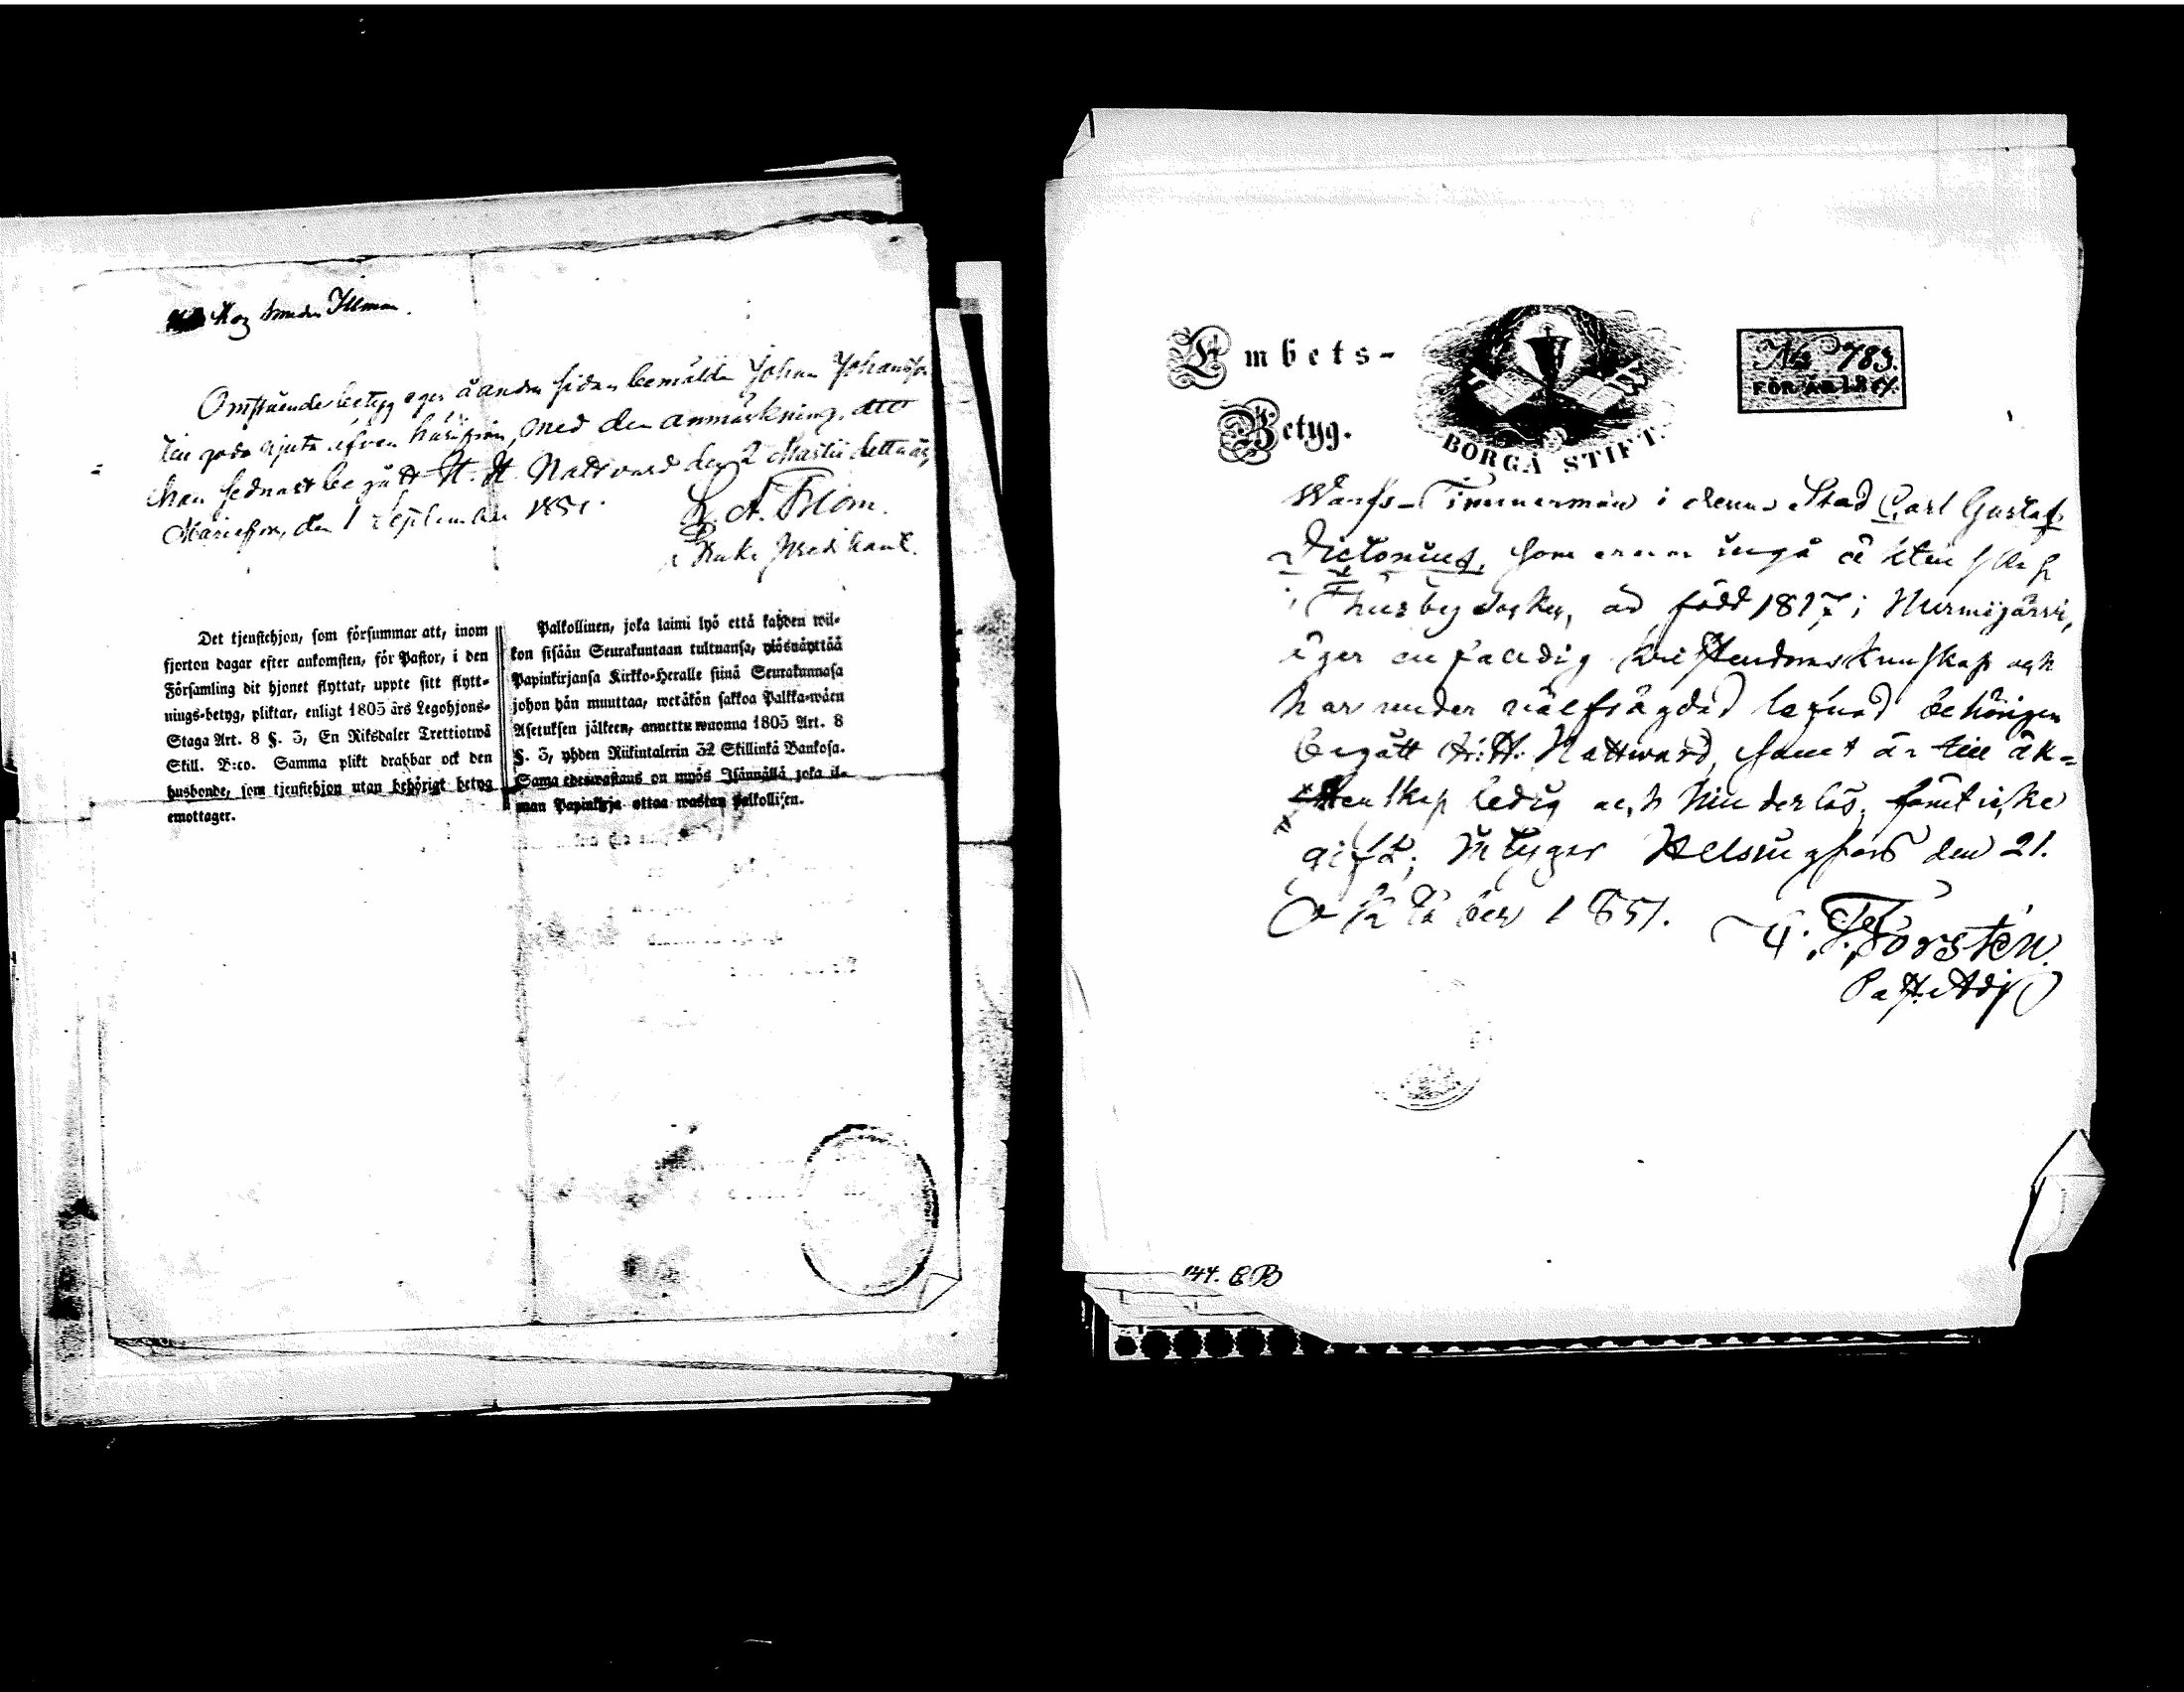 Hoz Smeden Illman.
Omstående betyg eger å andra sidan bemälde Johan Johansson
till godo njuta äfven härifrån, med den anmärkning, att
han sednast begått H. H. Nattvard den 2 Martii detta år,
den 1 September 1851.
Det tjenstehjon, som försummar att, inom
fjorton dagar efter ankomsten, för Pastor, i den
Församling dit hjonet flyttat, uppte sitt flytt-
nings-betyg, pliktar, enligt 1805 års Legohjons-
Staga Art. 8 §. 3, En Riksdaler Trettiotwå
Skill. B:co. Samma plikt drabbar ock den
husbonde, som tjenstehjon utan behörigt betyg
emottager.
Palkollinen, joka laimi lyö että kahden wil-
kon sisään Seurakuntaan tultuansa, ylösnäyttää
Papinkirjansa Kirkko-Herralle siinä Seurakunnasa
johon hän muuttaa, wetäkön sakkoa Palkka-wäen
Asetuksen jälkeen, annettu wuonna 1805 Art. 8
§. 3, yhden Riikintalerin 32 Skillinkiä Bankosa.
Sama edeswastaus on myös Isännällä joka il-
man Papinkirja ottaa wastan palkollisen.
Embets-
Betyg.
BORGÅ STIFT.
No 783.
FÖR ÅR 18
Warfs-Timmerman i denna Stad Carl Gustaf
Dictonius, som ernar ingå äktenskap
i Thusby Socken, är född 1817 i Nurmijärvi,
eger en faldig kristendomskunskap och
har under välfrägdad lefnad behörigen
begått H. H. Nattward, samt är till äk-
tenskap ledig och hinderlös, samt icke
gift; intygar Helsingfors den 21.
October 1851.
Forstén.
Past. Adj
144. EB